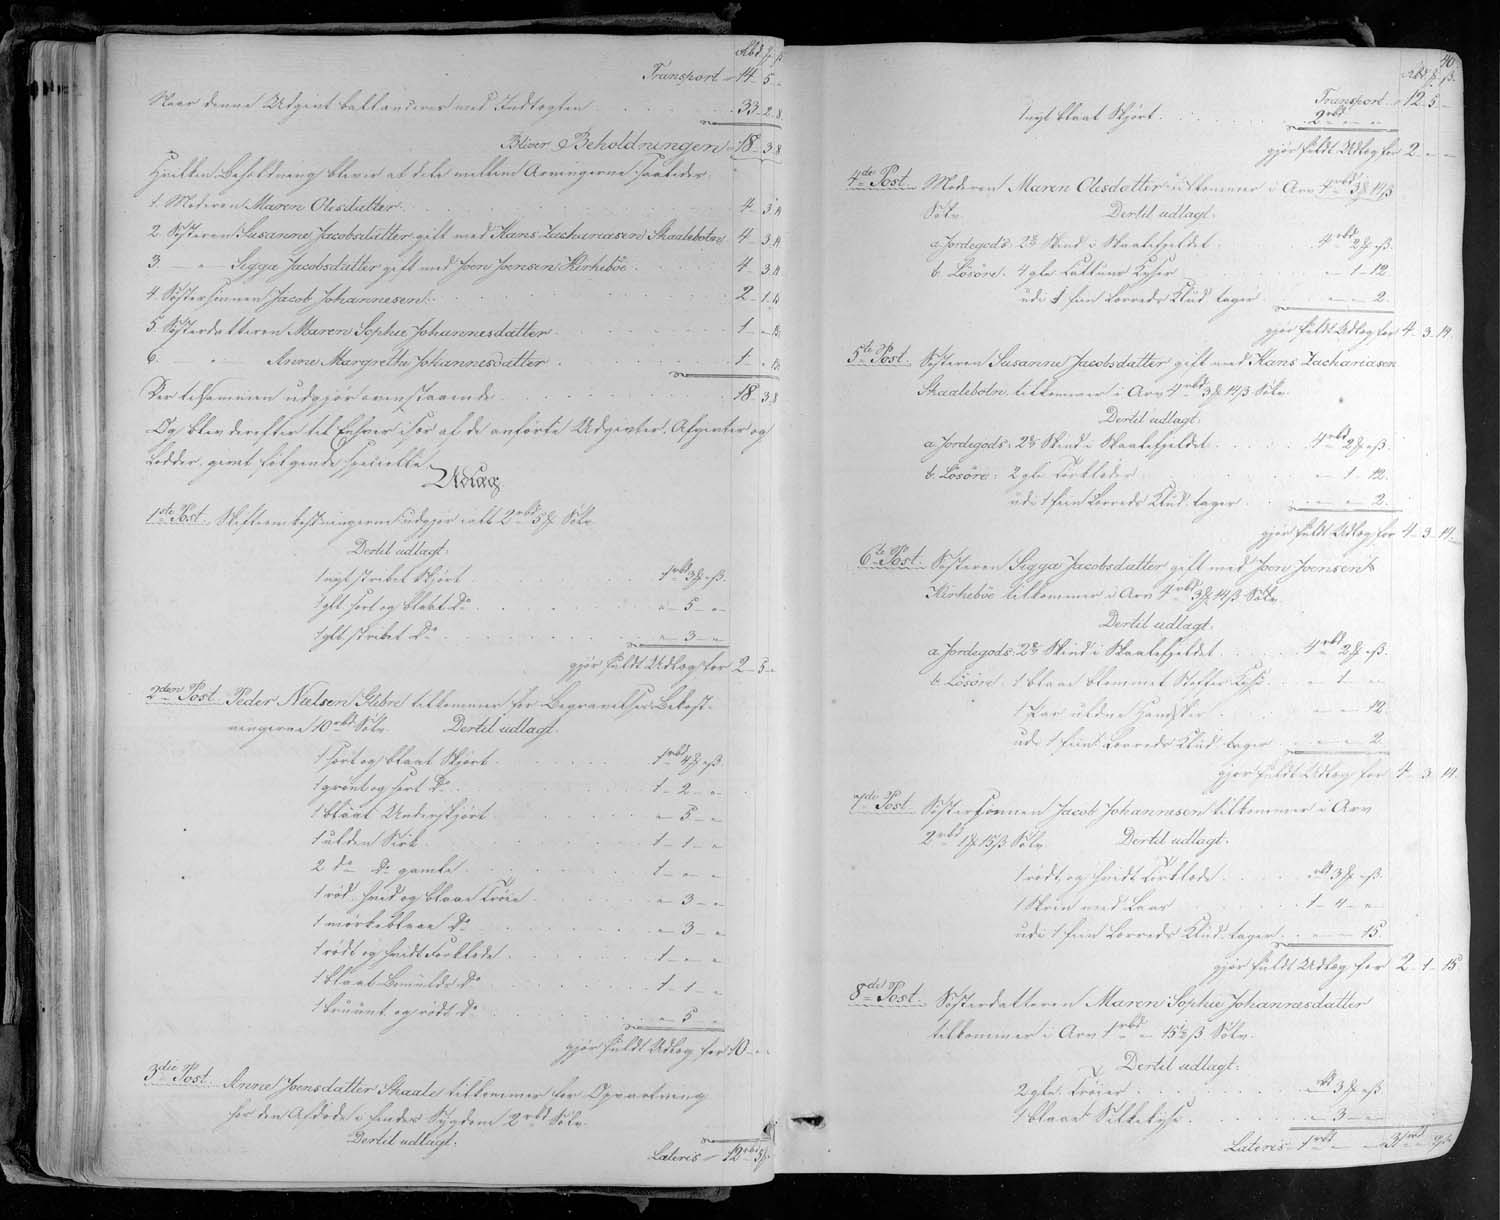 Rbd. ₰ ß
Transport 14 5 -
Naar denne Udgivt ballanceres med Indtægten 33 - 2 - 8
Bliver Beholdningen 18 - 3 8
Hvilken Beholdning bliver at dele mellem Arvingerne saaledes:
1. Moderen Maren Olesdatter 4 - 3 14
2. Søsteren Susanne Jacobsdatter gift med Hans Zachariasen Skaalebotn 4 - 3 14
3. — " — Sigga Jacobsdatter gift med Joen Joensen Kirkebøe 4 - 3 14
4. Søstersønnen Jacob Johannesen 2 - 1 15
5. Søsterdatteren Maren Sophie Johannesdatter 1 - "
6. " — Anne Margrethe Johannesdatter 1 - "
Der tilsammen udgjør ovenstaaende 18 - 3 8
Og blev derefter til Enhver især af de anførte Udgivter, Afgivter og
Lodder, gjort følgende specielle
Udlæg
1ste Post. Skifteomkostningerne udgjør ialt 2 rbd 5 ₰ Sølv
Dertil udlagt:
1 nyt stribet Skjørt 1 rbd 3 ₰ " ß
1 glt. sort og blaat Do " - 5 - "
1 glt. stribet Do " - 3 - "
gjør fuldt Udlæg for 2 - 5 - "
2den Post. Peder Nielsen Glibre tilkommer for Begravelses Bekost-
ningerne 10 rbd Sølv. Dertil udlagt.
1 sort og blaat Skjørt 1 rbd 4 ₰ " ß
1 grønt og sort Do 1 - 2 - "
1 blaat Underskjørt " - 5 - "
1 ulden Særk 1 - 1 - "
2 do Do gamle 1 - " - "
1 rød hvid og blaae Trøie " - 3 - "
1 mørkeblaae Do " - 3 - "
1 rødt og hvidt Forklæde 1 - " - "
1 blaat Bomulds Do 1 - 1 - "
1 bruunt og rødt Do " - 5 - "
gjør fuldt Udlæg for 10 - " - "
3die Post. Anna Joensdatter Skaale tilkommer for Opvartning
hos den Afdøde i hendes Sygdom 2 rbd Sølv.
Dertil udlagt.
Lateris 12 rbd 5 ₰
40
Rbd. ₰ ß.
Transport 12 - 5 -
1 nyt blaat Skjørt 2 rbd " - "
gjør fuldt Udlæg for 2 - " - "
4de Post. Moderen Maren Olesdatter tilkommer i Arv 4 rbd 3 ₰ 14 ß
Sølv. Dertil udlagt.
a. Jordegods: 2 Skind i Skaalefjeldet 4 rbd 2 ₰ " ß.
b. Løsøre: 4 gle Cattuns Kyser " - 1 - 12.
udi 1 fiin Lærreds Klud tager " - " - 2.
gjør fuldt Udlæg for 4 - 3 - 14.
5te Post. Søsteren Susanne Jacobsdatter gift med Hans Zachariasen
Skaalebotn tilkommer i Arv 4 rbd 3 ₰ 14 ß Sølv.
Dertil udlagt.
a. Jordegods: 2 Skind i Skaalefjeldet 4 rbd 2 ₰ " ß.
b. Løsøre: 2 gle Forklæder " - 1 - 12.
udi 1 fiin Lærreds Klud tager " - " - 2.
gjør fuldt Udlæg for 4 - 3 - 14.
6te Post. Søsteren Sigga Jacobsdatter gift med Joen Joensen
Kirkebøe tilkommer i Arv 4 rbd 3 ₰ 14 ß Sølv.
Dertil udlagt.
a. Jordegods: 2 Skind i Skaalefjeldet 4 rbd 2 ₰ " ß.
b. Løsøre: 1 blaae blommet " - 1 - "
1 Par uldne Handsker " - " - 12.
udi 1 fiint Lærreds Klud tager " - " - 2.
gjør fuldt Udlæg for 4 - 3 - 14.
7de Post. Søstersønnen Jacob Johannesen tilkommer i Arv
2 rbd 1 ₰ 15 ß Sølv. Dertil udlagt.
1 rødt og hvidt Forklæde " rbd 3 ₰ " ß.
1 Skrin med Laas 1 - 4 - "
udi 1 fiin Lærreds Klud tager " - " - 15.
gjør fuldt Udlæg for 2 - 1 - 15
8de Post. Søsterdatteren Maren Sophie Johannesdatter
tilkommer i Arv 1 rbd " - 15½ ß Sølv.
Dertil udlagt:
2 gle Trøier " rbd 3 ₰ " ß
1 blaae Silketyse " - 3 - "
Lateris 1 rbd